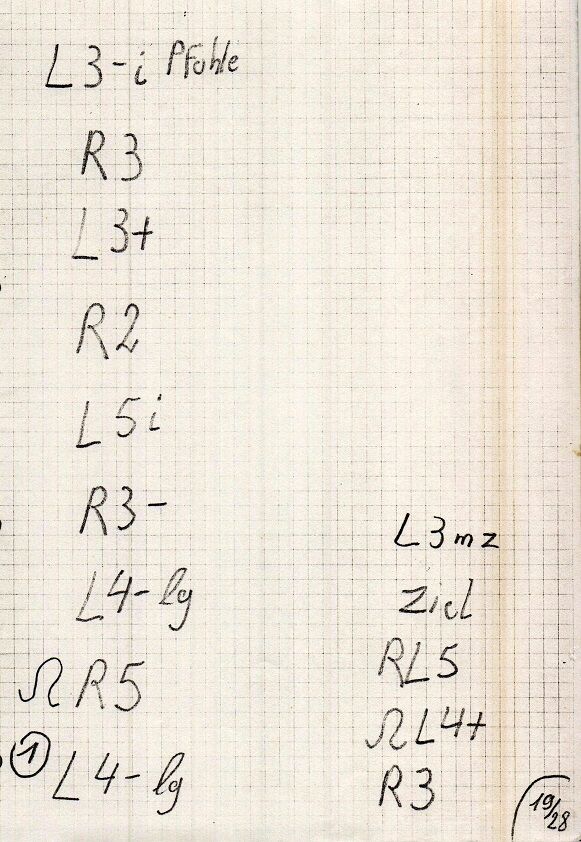 L3-i Pfähle
R3
L3+
R2
L5i
R3-
L4-lg
Ω R5
① L4-lg
L3mz
Ziel
RL5
ΩL4+
R3
19/28